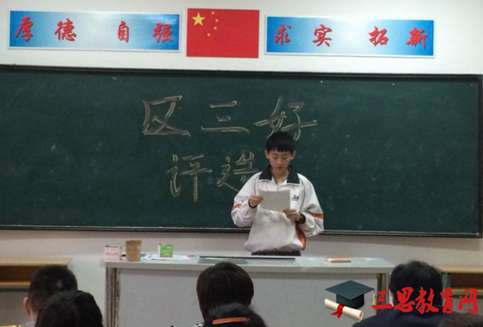 厚德 自强
求实 拓新
区三好
评选
三思教育网